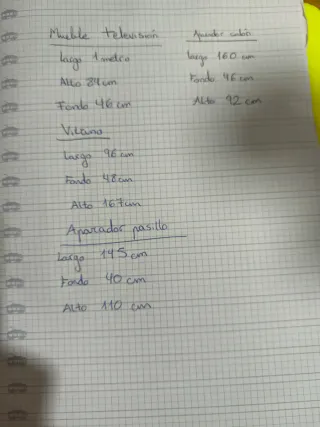 Mueble televisión
Largo 1 metro
Alto 84 cm
Fondo 46 cm
Vitrina
Largo 96 cm
Fondo 48 cm
Alto 167 cm
Aparador pasillo
Largo 145 cm
Fondo 40 cm
Alto 110 cm
Aparador salón
Largo 160 cm
Fondo 46 cm
Alto 92 cm